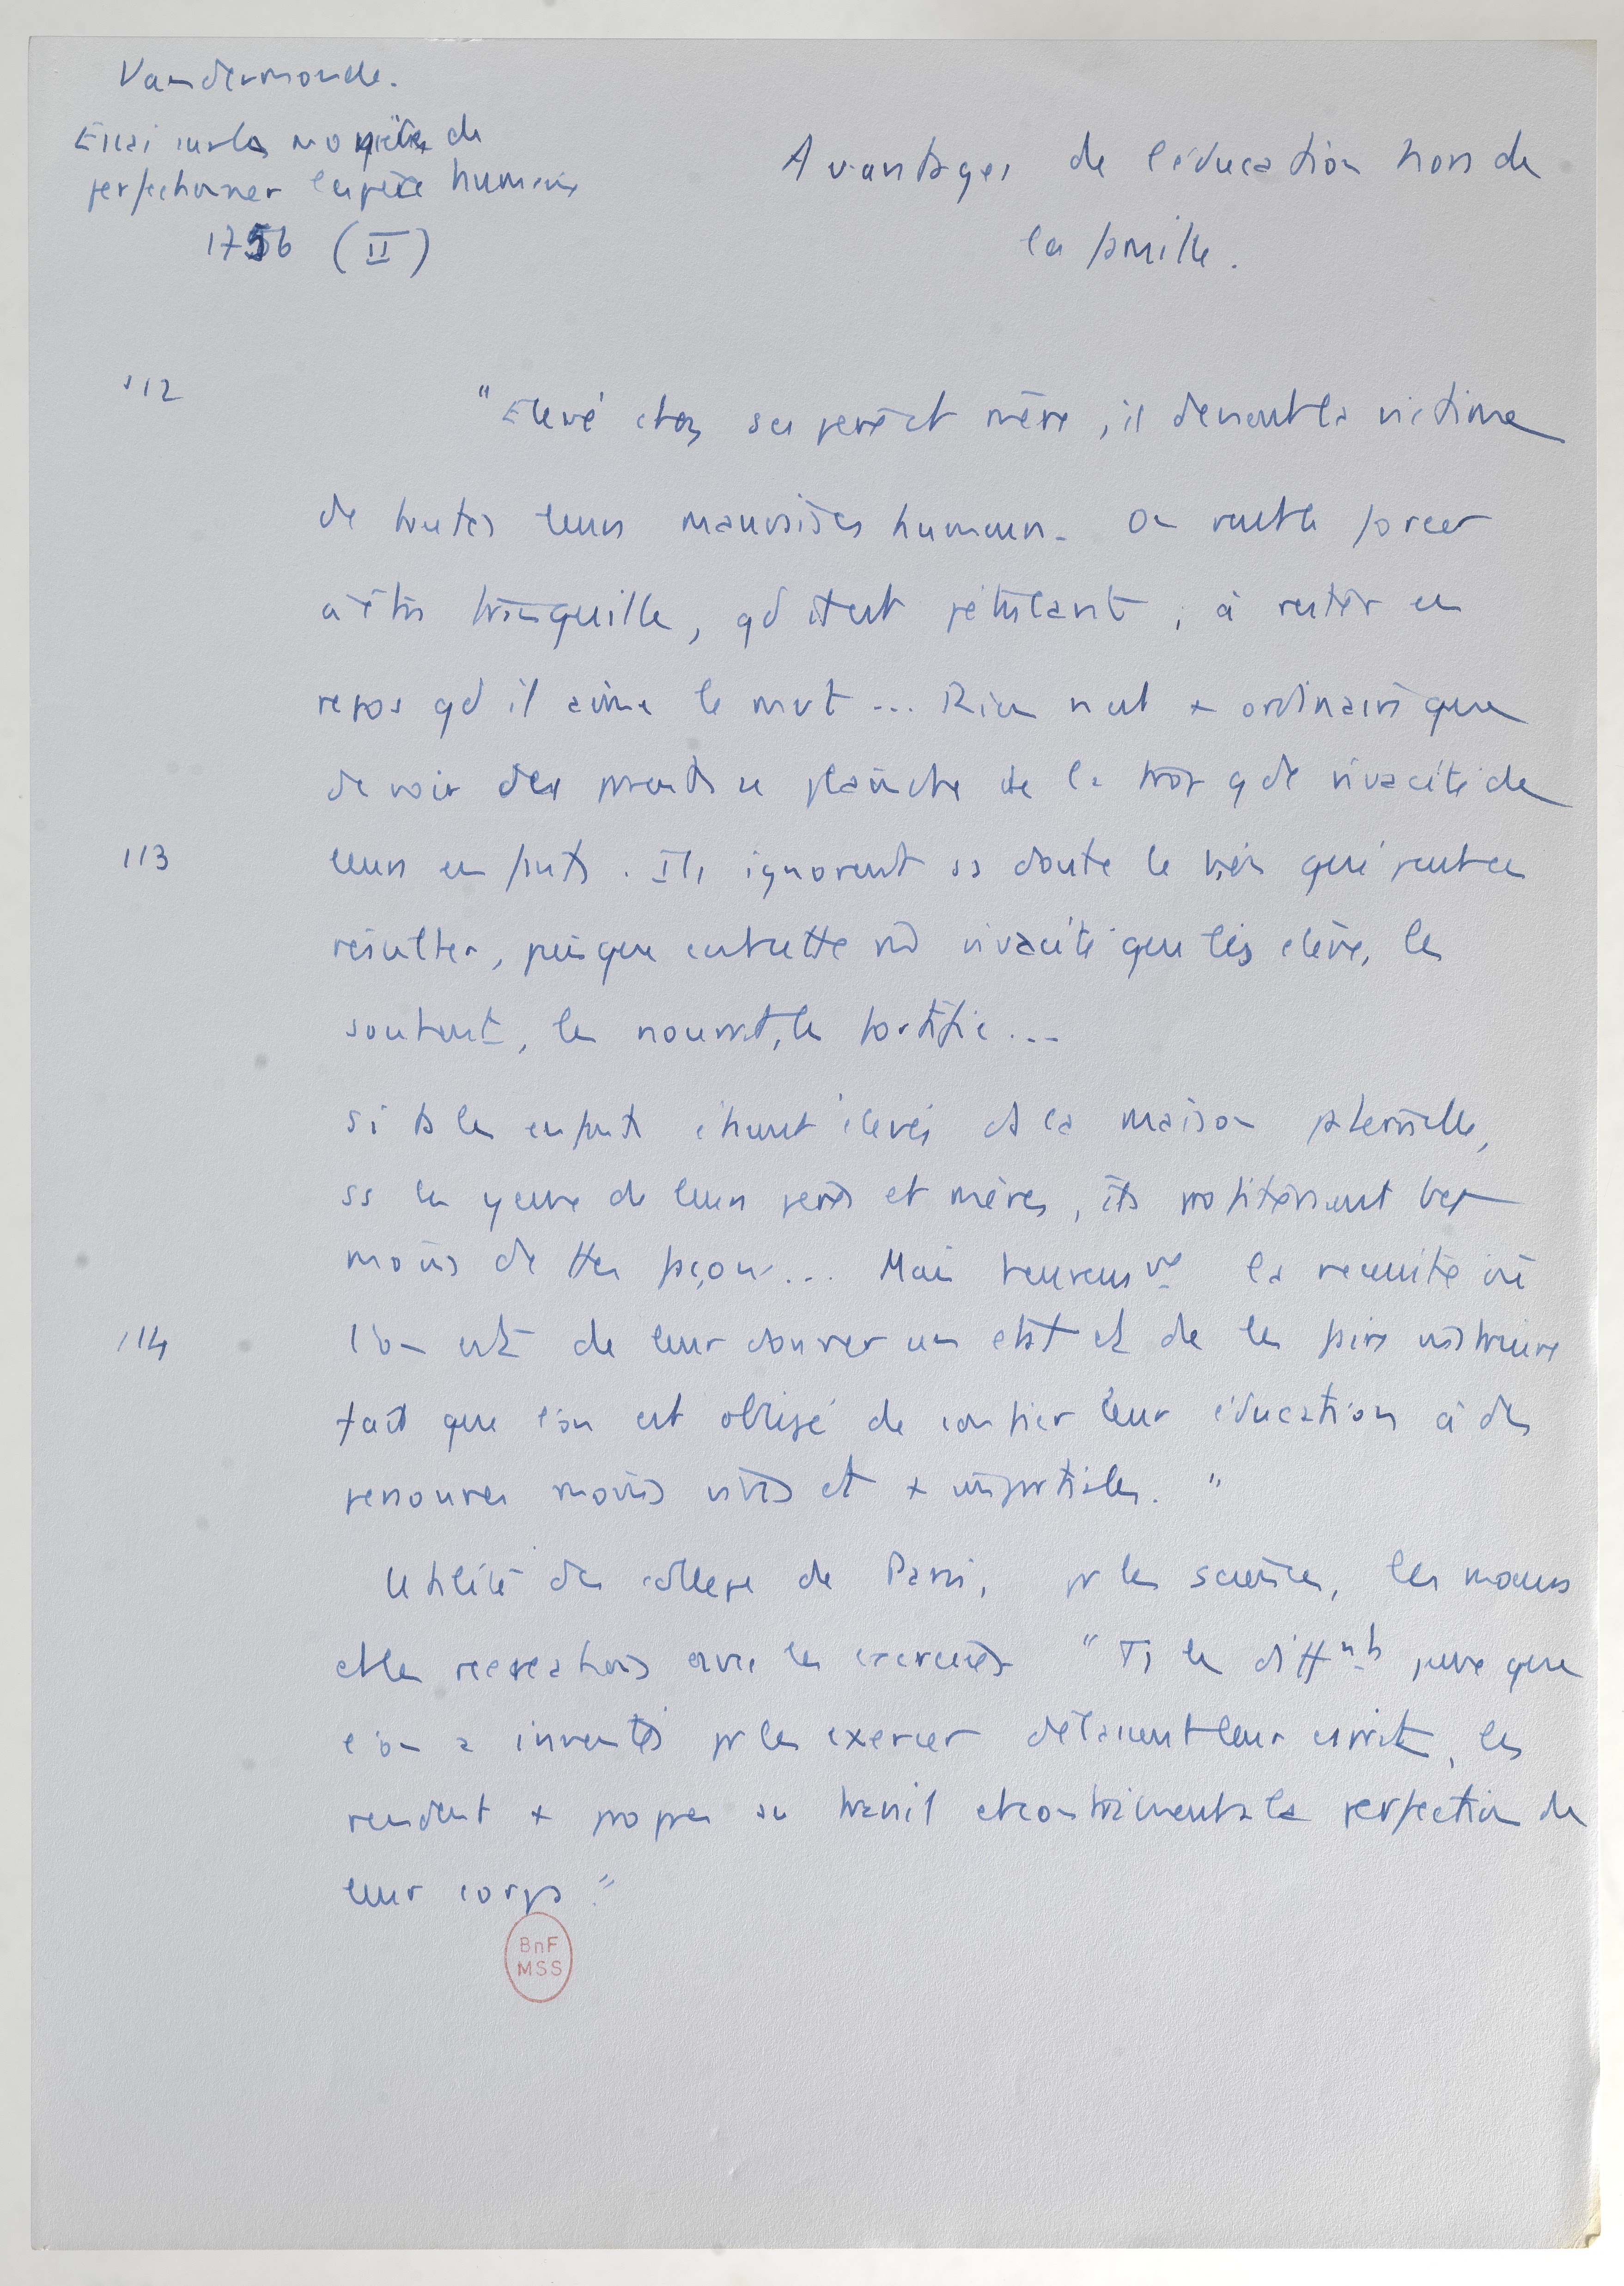 Vandermonde.
Essai sur la manière de
perfectionner l'espèce humaine
1756 (II)
Avantages de l'éducation hors de
la famille.
112
"Elevé chez ses père et mère, il devient la victime
de toutes leurs mauvaises humeurs. On veut le forcer
à être tranquille, qd il est pétulant, à rester en
repos qd il aime le mvt... Rien n'est + ordinaire que
de voir des parents se plaindre de la trop gde vivacité de
113
leurs enfants. Ils ignorent ss doute le bien qui peut en
résulter, puisque c'est cette vivacité qui les élève, les
soutient, les nourrit, les fortifie...
Si ts les enfants étaient élevés ds la maison paternelle,
ss les yeux de leurs pères et mères, ils profiteraient bcp
moins de ttes façons... Mais heureusmt la nécessité où
114
l'on est de leur donner un état et de les faire instruire
fait que l'on est obligé de confier leur éducation à des
personnes moins vives et + impartiales."
Utilité des collèges de Paris, pr les sciences, les moeurs
et les récréations avec les exercices "Ts les diffnts jeux que
l'on a inventés pr les exercer délassent leur esprit, les
rendent + propres au travail et contribuent à la perfection de
leur corps"
BnF
MSS